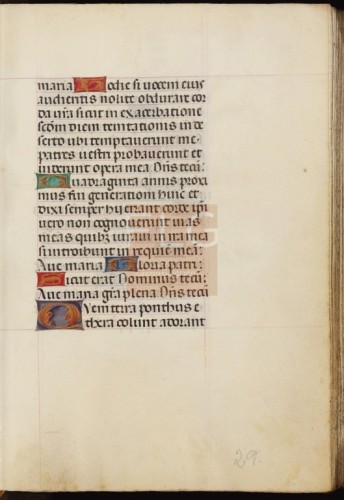 maria Hodie si vocem eius
audieritis nolite obdurare cor
da vr̃a sicut in exacerbatione
scd̃m diem temtationis in de
serto ubi temptaverunt me
patres vestri probaverunt et
viderunt opera mea Dñs tecũ:
Quadraginta annis proxi
mus fui generationi huic et
dixi semper hij errant corde ipĩ
vero non cognoverunt vias
meas quibz iuravi in ira mea
si introibunt in requiẽ meã:
Ave maria Gloria patri:
Sicut erat Dominus tecũ:
Ave maria grã plena Dñs tecũ
Quem terra ponthus e
thera colunt adorant
29.